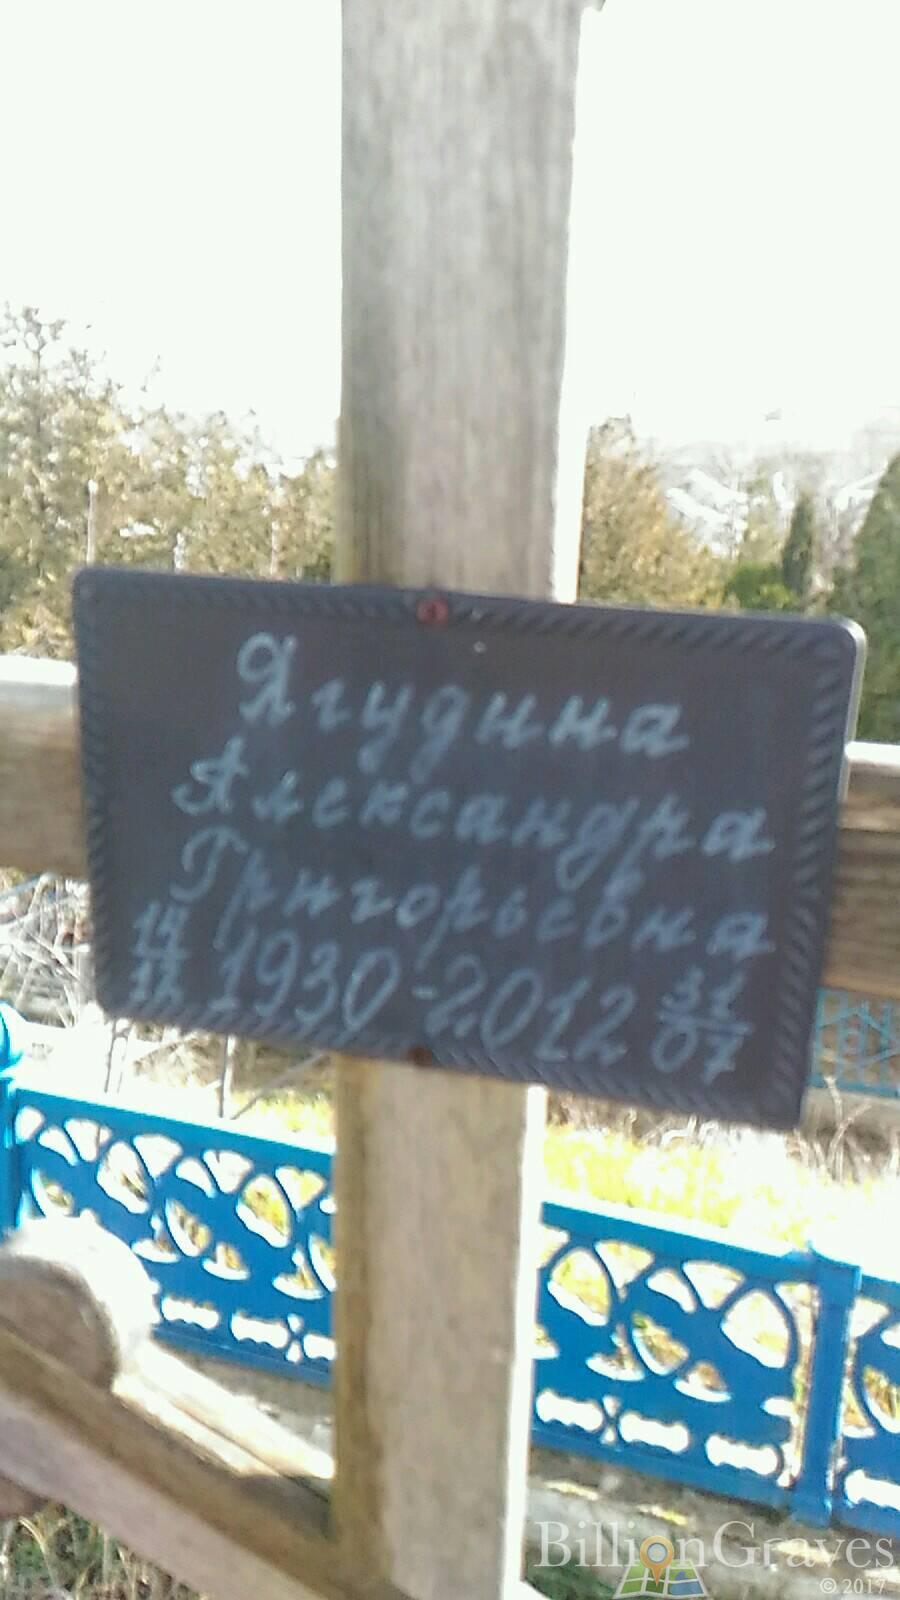 Ягудина
Александра
Григорьевна
14/12 1930-2012 31/07
BillionGraves
© 2017